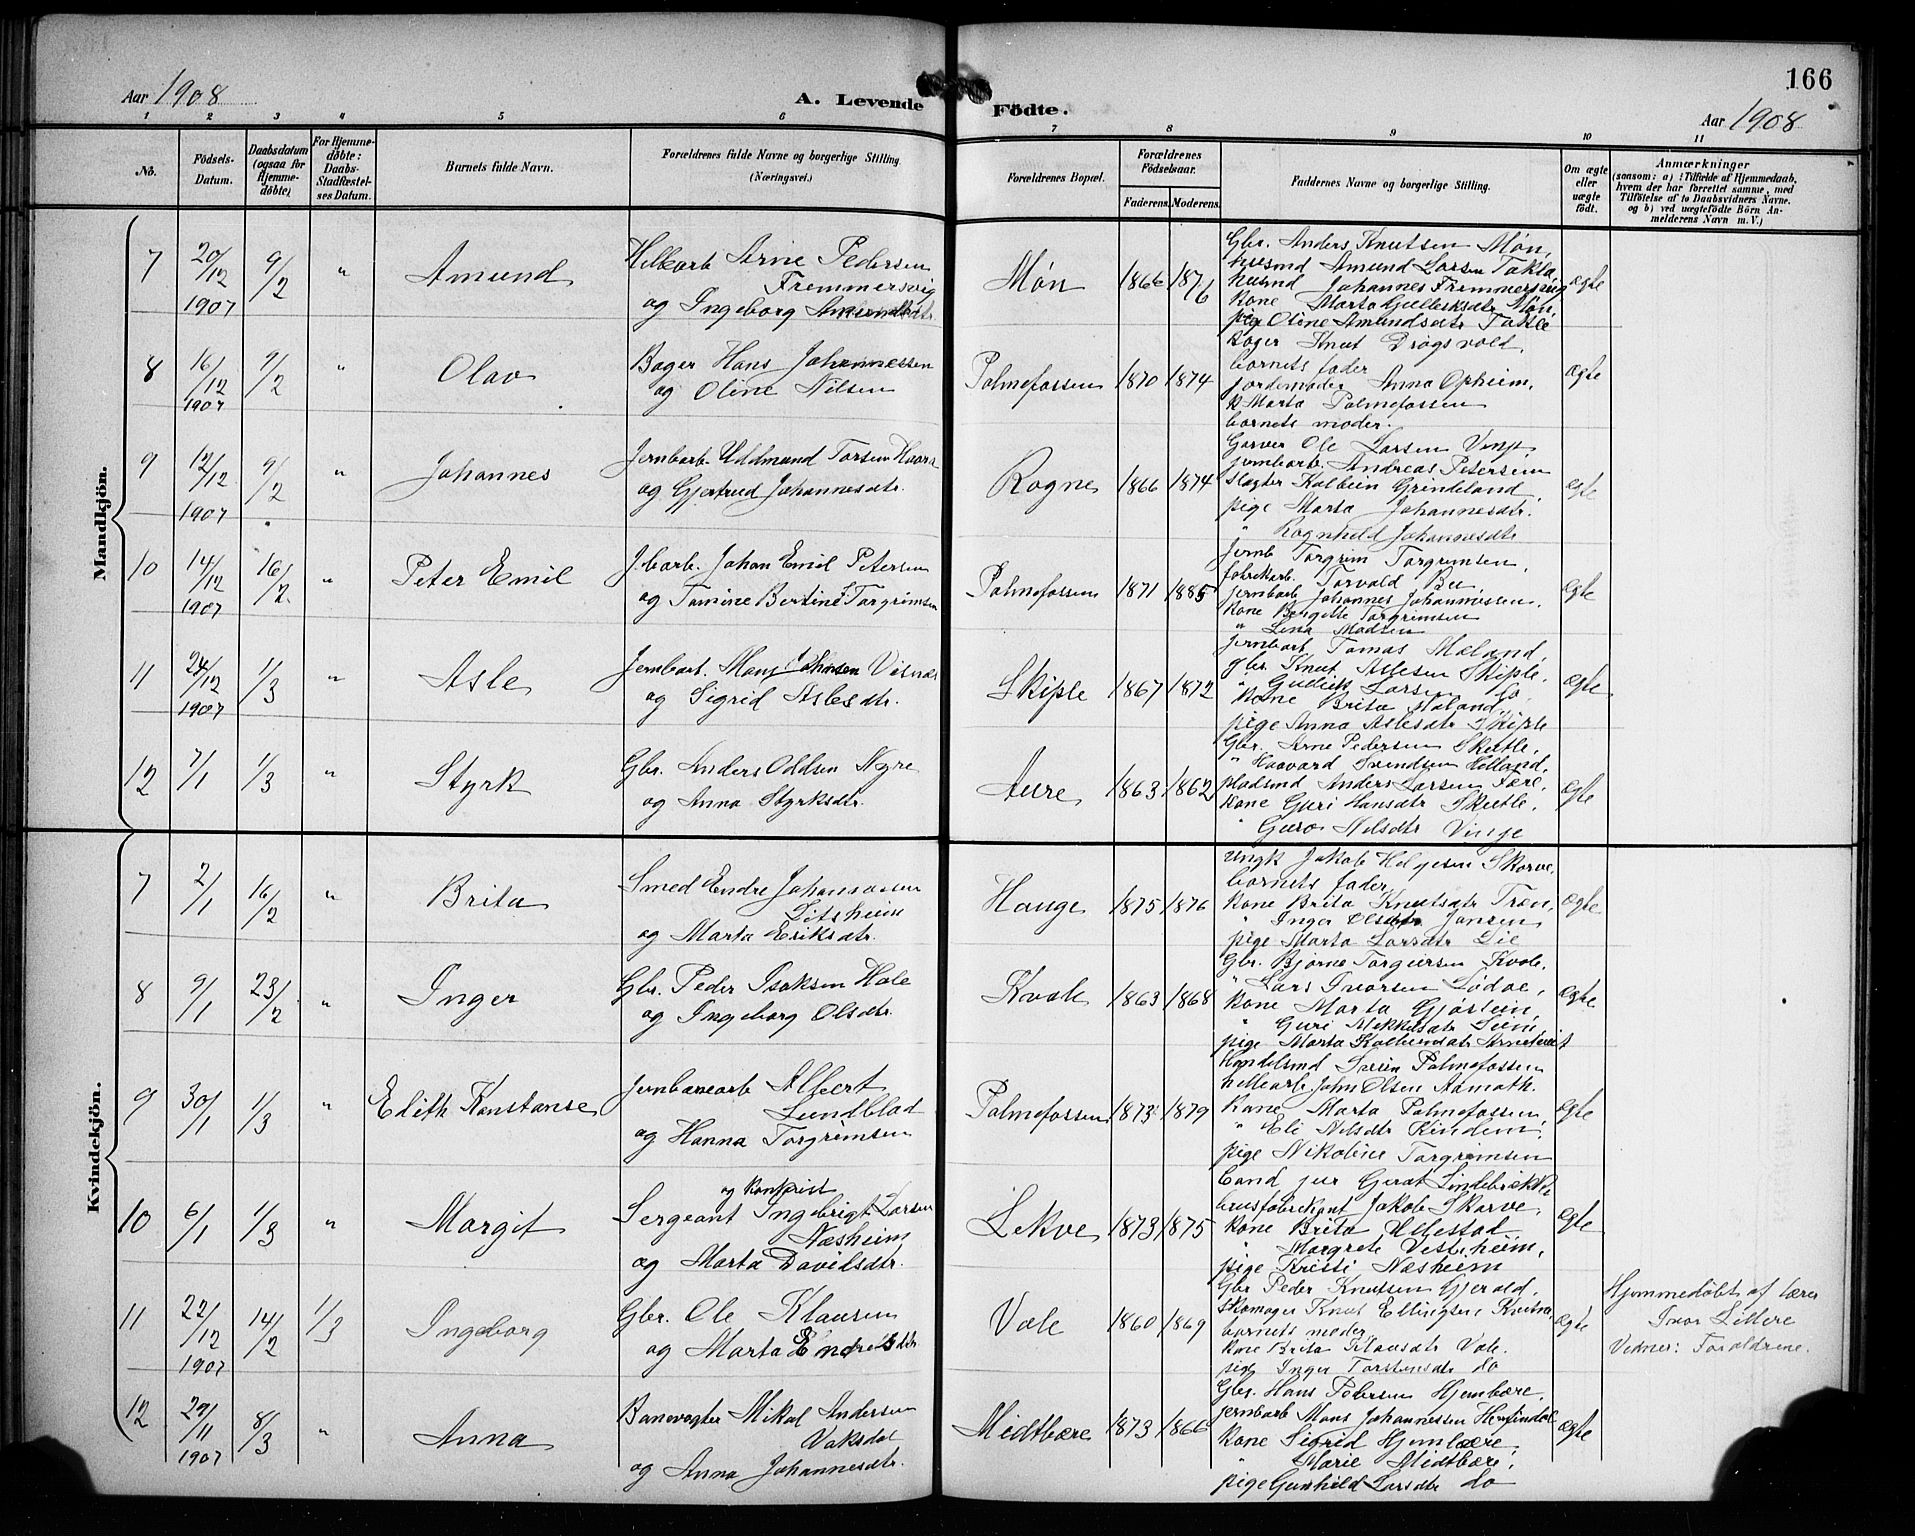 Aar 1908
A. Levende Födte.
166
Aar 1908
1 2 3 4 5 6 7 8 9 10 11
No.
Födsels-Datum.
Daabsdatum (ogsaa for Hjemmedöbte)
For Hjemmedöbte: Daabs-Stadfæstelses Datum.
Barnets fulde Navn.
Forældrenes fulde Navne og borgerlige Stilling. (Næringsvei.)
Forældrenes Bopæl.
Forældrenes Födselsaar.
Faderens. Moderens.
Faddernes Navne og borgerlige Stilling.
Om ægte eller uægte födt.
Anmærkninger
(saasom: a) i Tilfælde af Hjemmedaab, hvem der har forrettet samme, med Tilföielse af to Daabsvidners Navne. og b) ved uægtefödte Börn Anmelderens Navn m. V.)
Mandkjön.
7 20/12 1907 9/2 " Amund
Arne Pedersen
Fremmersvig
og Ingeborg Amundsdtr.
Møn 1866 1876
Gbr. Anders Knutsen Møn,
husmd Amund Larsen Takla,
husmd Johannes Fremmersvig
kone Marta Gulleiksdtr Møn,
pige Oline Amundsdtr Takle
ægte
8 16/12 1907 9/2 " Olav
Bager Hans Johannessen
og Oline Nilsen
Palmefossen 1870 1874
Bager Knut Dragsvold,
barnets fader
jordemoder Anna Opheim,
k Marta Palmefossen
barnets moder.
ægte
9 12/12 1907 9/2 " Johannes
Jernbarb. Uddmund Torsen
og Gjertrud Johannesdtr.
Rogne 1866 1874
Garver Ole Larsen
jernbarb. Andreas Petersen
slagter Kolbein Grindeland,
pige Marta Johannesdtr.
" Ragnhild Johannesdtr
ægte
10 14/12 1907 16/2 " Peter Emil
Jbarb. Johan Emil Petersen
og Tomine Bertine Torgrimsen
Palmefossen 1871 1885
Jernb Torgrim Torgrimsen,
fabrikarb. Torvald Bu
jernbarb Johannes Johannessen,
kone Bergitte Torgrimsen
" Lina Madsen
ægte
11 24/12 1907 1/3 " Asle
Jernbart. Mons Johnsen
og Sigrid Aslesdtr.
Skiple 1867 1872
Jernbart Tomas Mæland,
gbr. Knut Aslesen Skiple,
" Gulleik Larsen do
kone Brita Mæland,
pige Anna Aslesdtr Skiple
ægte
12 7/1 1/3 " Styrk
Gbr. Anders Oddsen Nyre
og Anna Styrksdtr.
Aure 1863 1862
Gbr. Arne Pedersen Skutle,
" Haavard Svendsen Helland,
pladsmd Anders Larsen Fære,
kone Guri Hansdtr Skutle,
" Guro Nilsdtr Vinje
ægte
Kvindekjön.
7 2/1 16/2 " Brita
Smed Endre Johannessen
Litsheim
og Marta Eriksdtr.
Hauge 1875 1876
ungk Jakob Helgesen Skorve,
barnets fader,
kone Brita Knutsdtr Træn,
" Inger Olsdtr Jansen,
pige Marta Larsdtr Lie
ægte
8 9/1 23/2 " Inger
Gbr. Peder Isaksen Hole
og Ingeborg Olsdtr.
Kvale 1863 1868
Gbr. Bjørne Torgiersen Kvale,
" Lars Ivarsen Lødve,
kone Marta Gjøstein,
" Guri Mikkelsdtr Leem,
pige Marta
ægte
9 30/1 1/3 " Edith Konstanse
Jernbanearb Albert
Lundblad
og Hanna Torgrimsen
Palmefossen 1873 1879
Handelsmd Svein Palmefossen
hellearb John Olsen Aamoth.
Kone Marta Palmefossen,
" Eli Nilsdtr Kindem,
pige Nikoline Torgrimsen
ægte
10 6/1 1/3 " Margit
og kontorist
Sergeant Ingebrigt Larsen
Næsheim
og Marta Davidsdtr.
Lekve 1873 1875
Cand jur Gerat Lindebrække
brusfabrikant Jakob Skorve,
kone Brita Ullestad
" Margrete Vestrheim,
pige Kristi Næsheim
ægte
11 22/12 1907 14/2 1/3 Ingeborg
Gbr. Ole Klausen
og Marta Endresdtr
Vale 1860 1869
Gbr Peder Knutsen Gjerald,
skomager Knut Ellingsen
barnets moder,
kone Brita Klausdtr Vale.
pige Inger Torstensdtr do
ægte
Hjemmedöbt af lærer
Ivar Lillere
Vidner: Forældrene.
12 29/11 1907 8/3 " Anna
Banevogter Mikal Andersen
Vaksdal
og Anna Johannesdtr.
Midtbære 1873 1866
Gbr. Hans Pedersen Hjembære,
jernbarb Mons Johannessen
kone Sigrid Hjembære,
" Marie Midtbære,
pige Gunhild Larsdtr do
ægte